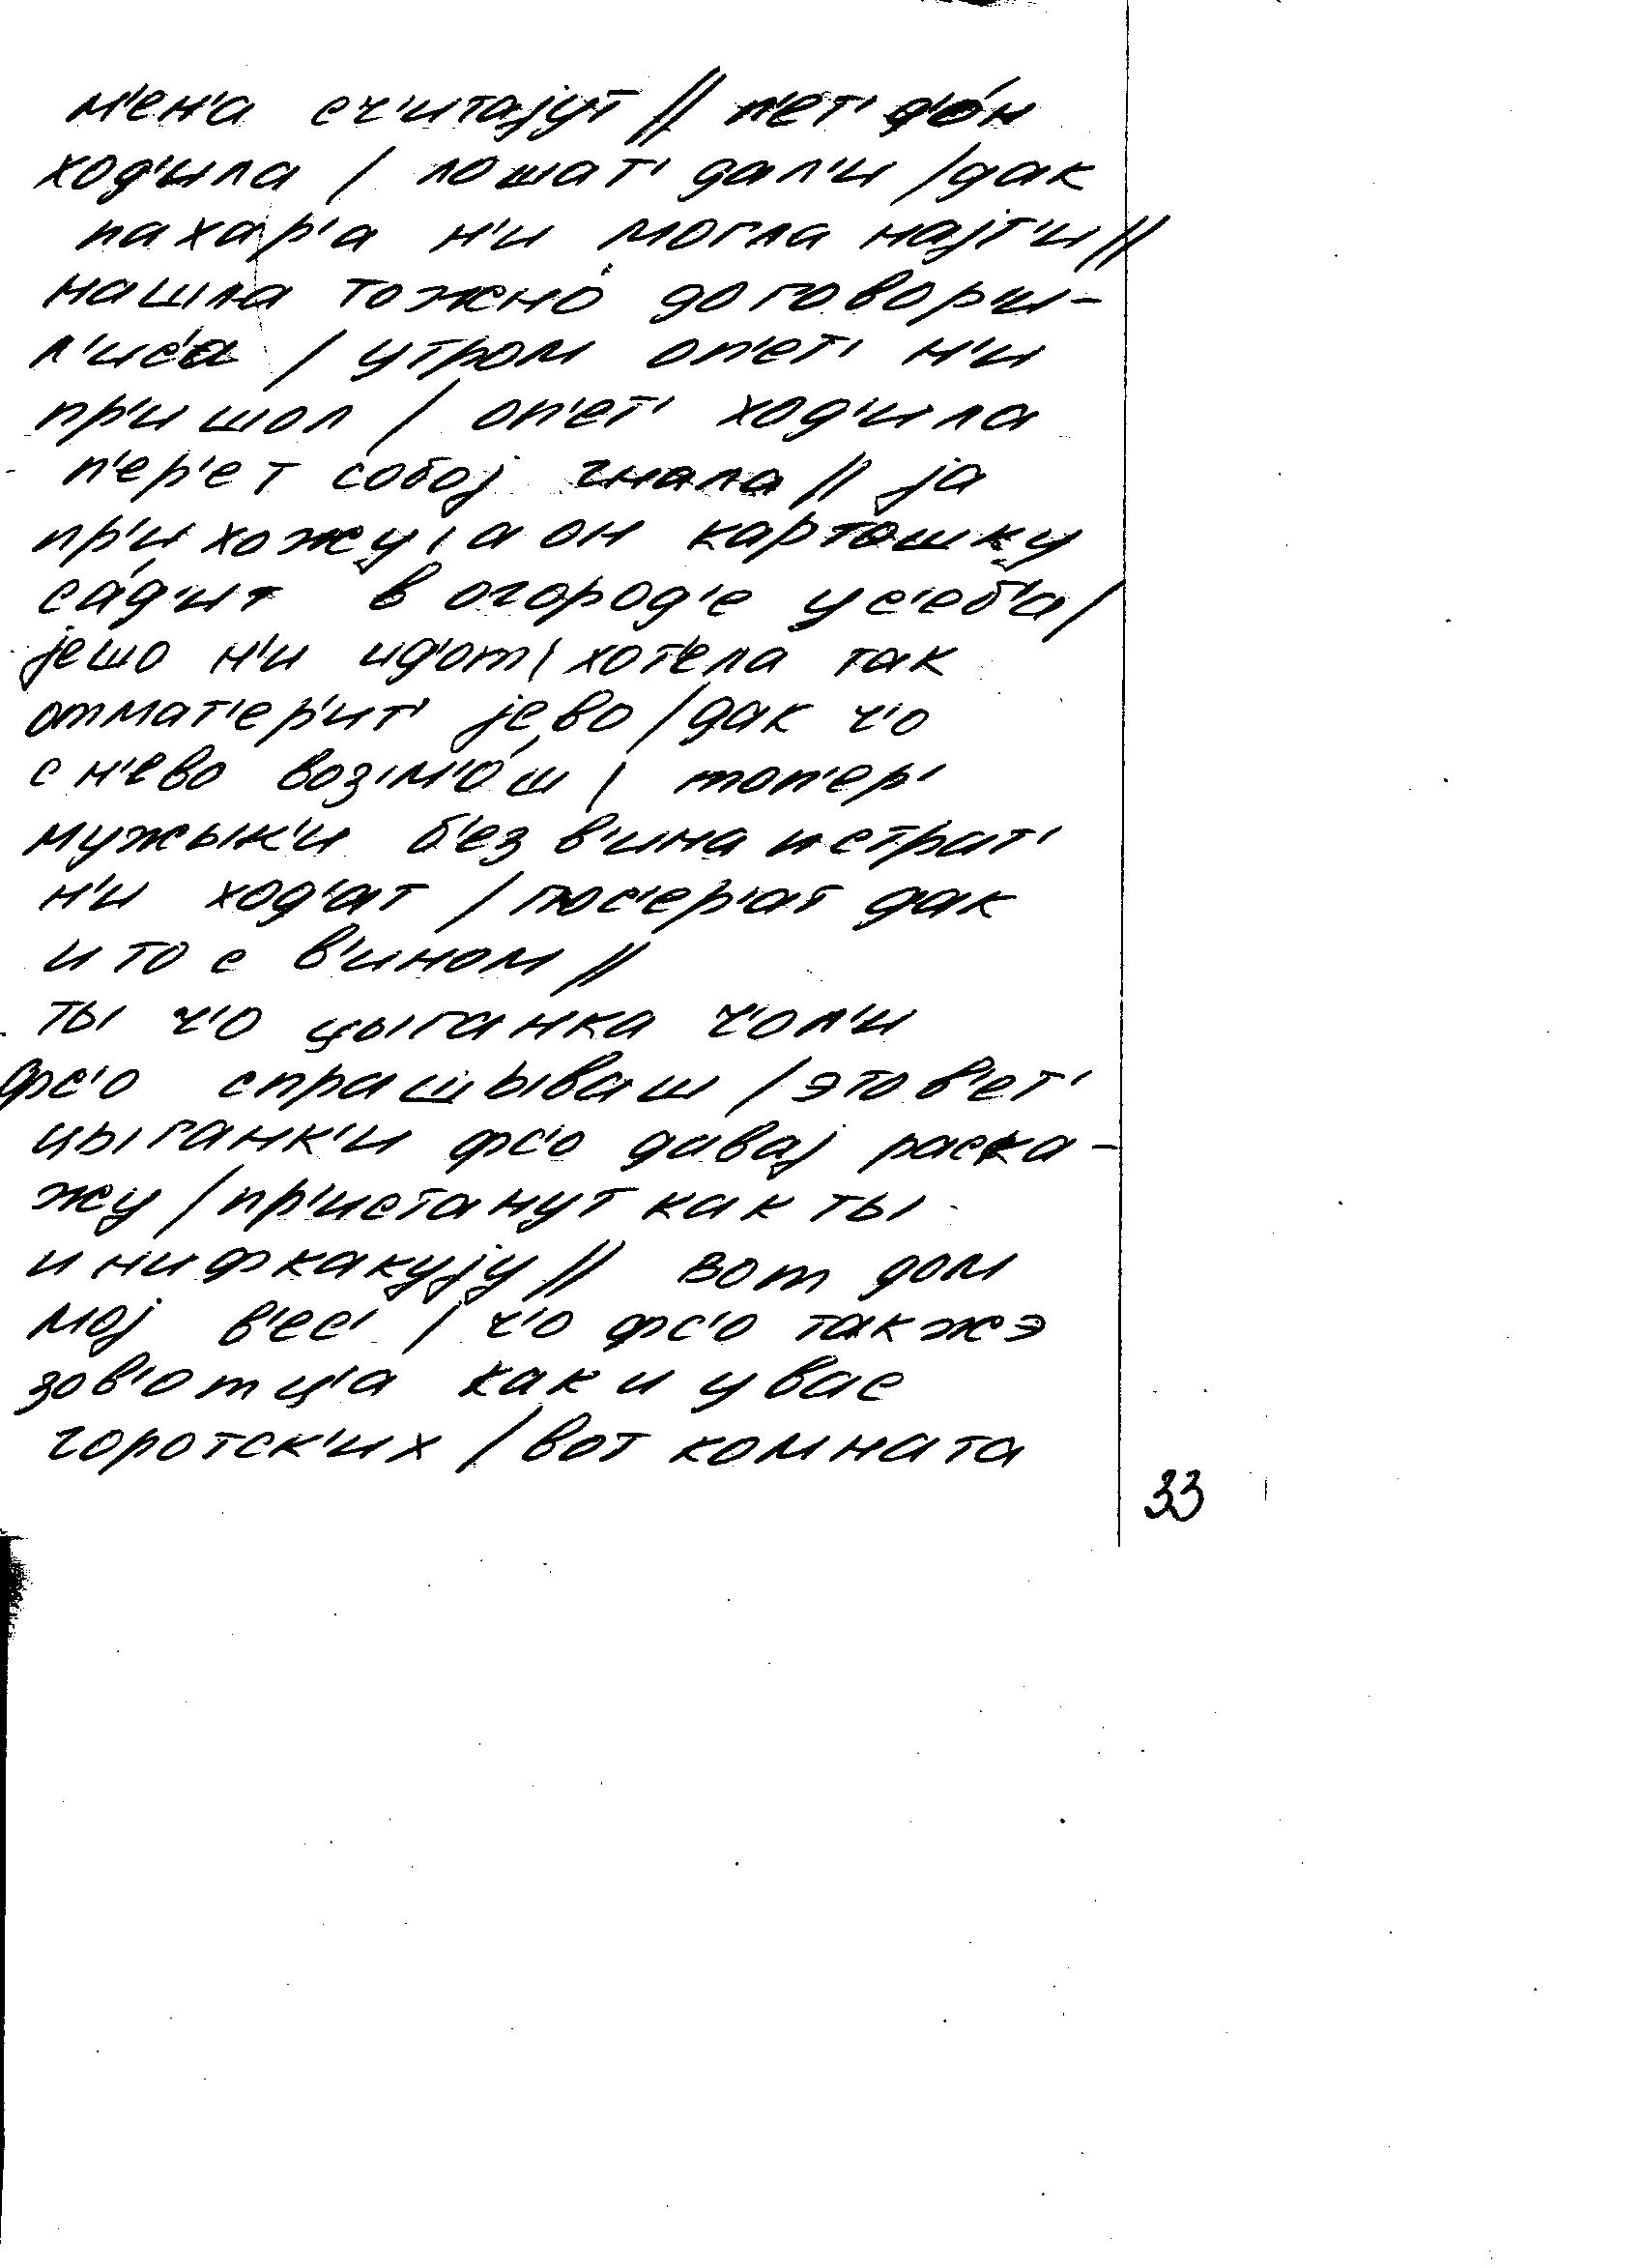 м'ен'а сч'итајут // п'ет' д'о́н
ход'ила / лошат' дал'и / дак
пахар'а н'и могла најт'и //
нашла тожно́ договори-
л'ис'а / утром оп'ет' н'и
пр'ишол / оп'ет' ход'ила
п'ер'ет собој гнала // ја
пр'ихожу / а он картошку
са́д'ит в огород'е у с'еб'а /
јешо н'и ид'от / хот'ела так
отмат'ер'ит' јево / дак ч'о
с н'ево воз'м'о́ш / топ'ер'
мужык'и б'ез в'ина и страт'
н'и ход'ат / пос'ер'ат дак
и то с в'ином //
ты ч'о цыганка ч'ол'и
фс'о спрашываш / это в'ет'
цыганк'и фс'о давај раска-
жу / пр'истанут как ты
и нифкакују // вот дом
мој в'ес' / ч'о фс'о такжэ
зов'отц'а как и у вас
горотск'их / вот комната
33